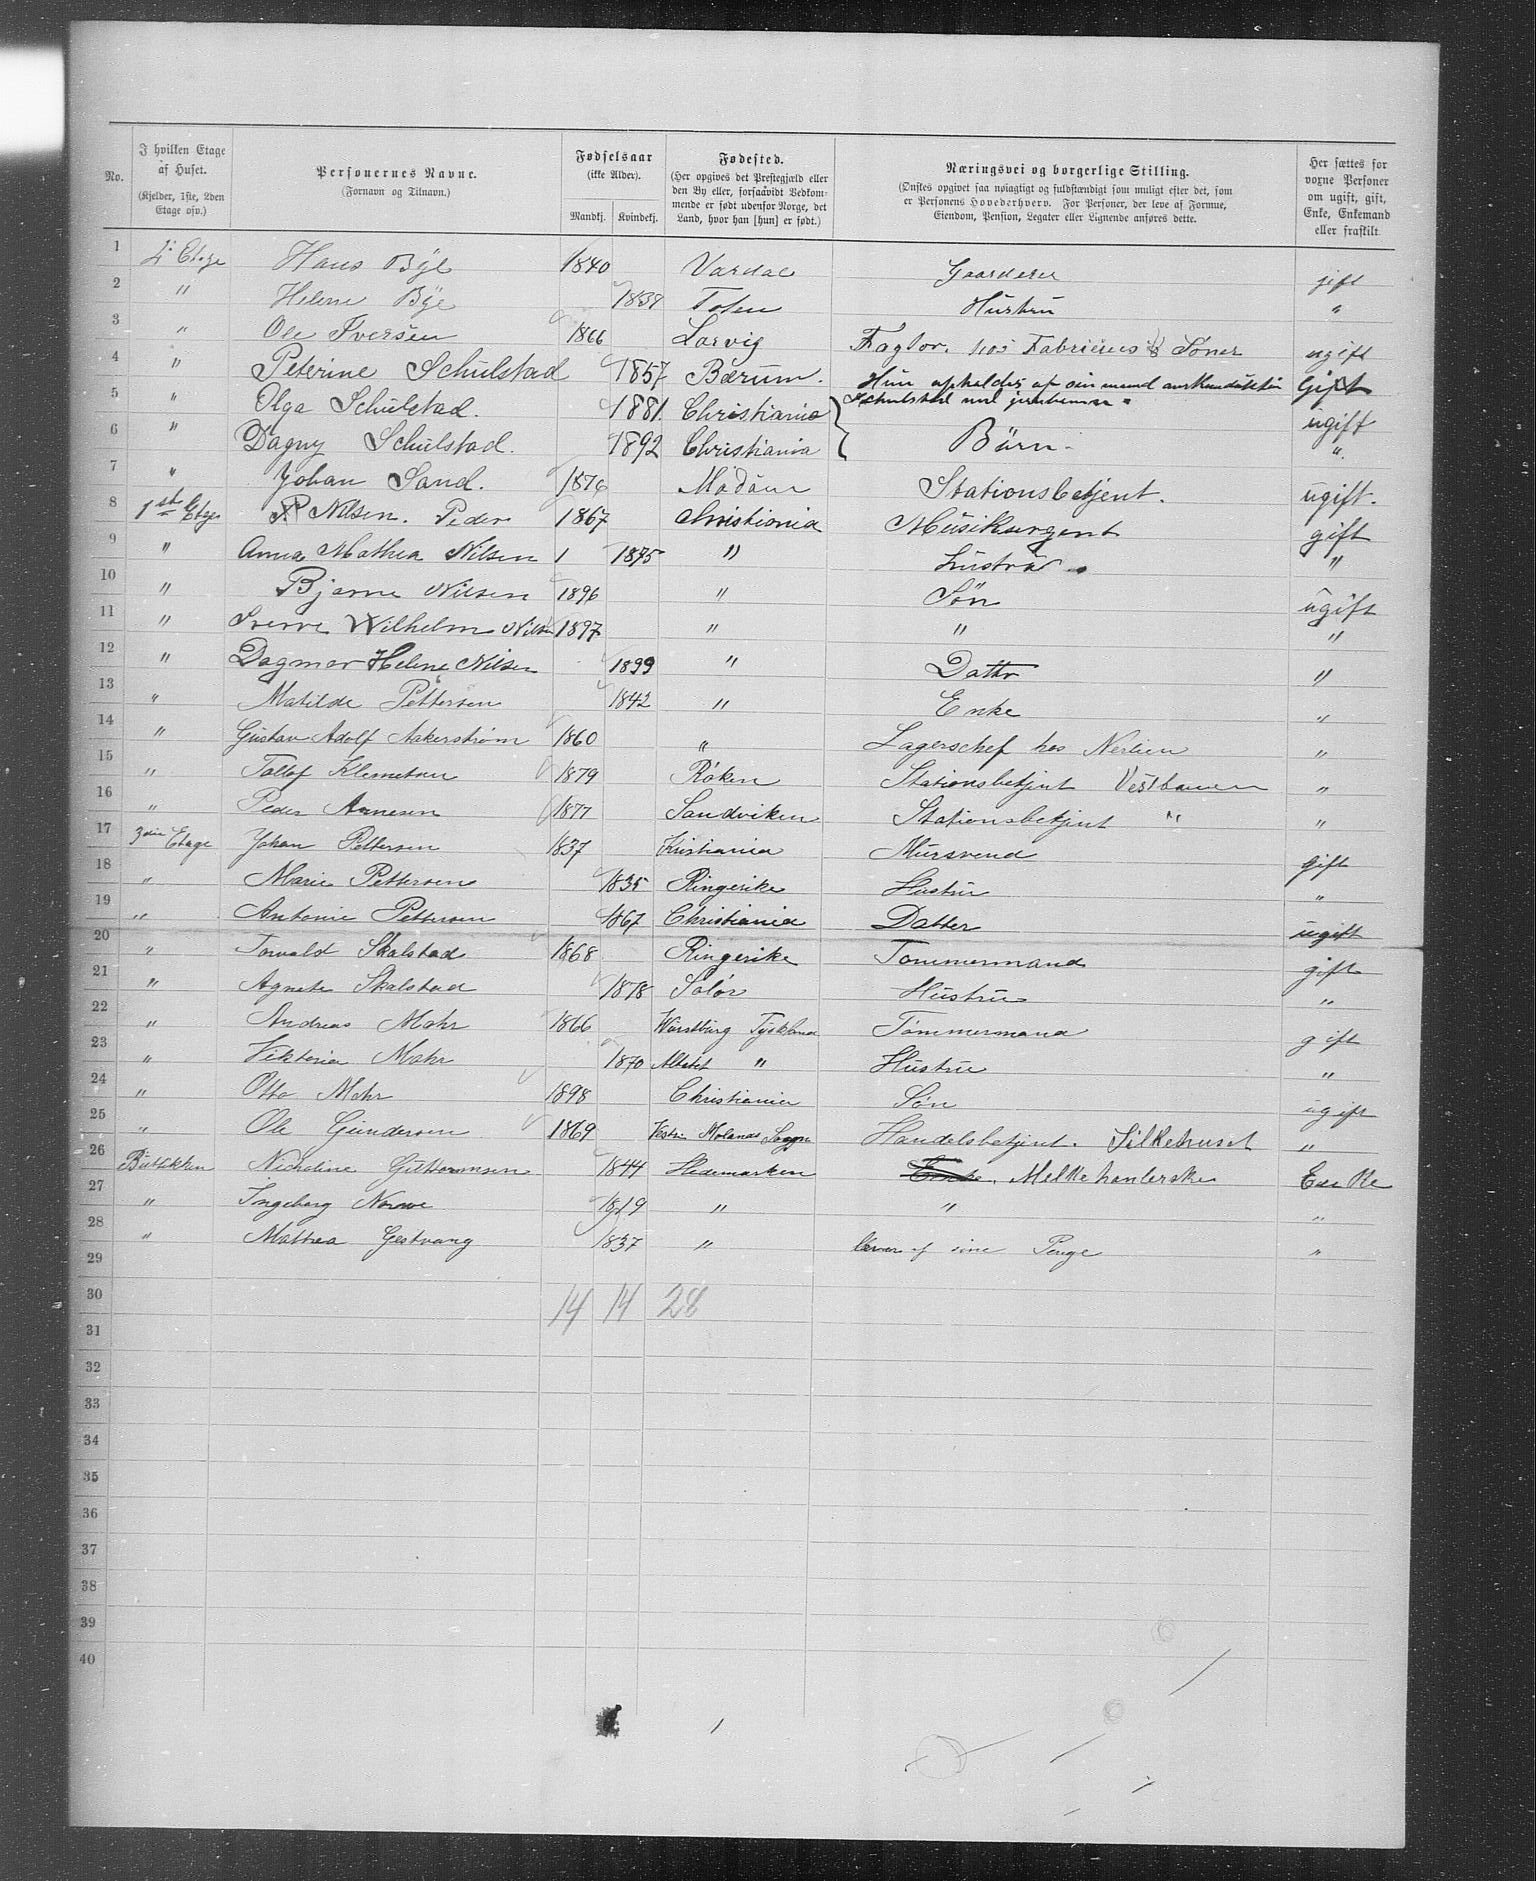 No. | I hvilken Etage af Huset. (Kjelder, 1ste, 2den Etage osv.) | Personernes Navne. (Fornavn og Tilnavn.) | Fødselsaar (ikke Alder). Mandkj. | Kvindekj. | Fødested. (Her opgives det Prestegjæld eller den By eller, forsaavidt Vedkommende er født udenfor Norge, det Land, hvor han [hun] er født.) | Næringsvei og borgerlige Stilling. (Ønskes opgivet saa nøiagtigt og fuldstændigt som muligt efter det, som er Personens Hovederhverv. For Personer, der leve af Formue, Eiendom, Pension, Legater eller Lignende anføres dette. | Her sættes for voxne Personer om ugift, gift, Enke, Enkemand eller fraskilt.
1 Etage Hans Bye 1840 Vardal Gaardeier gift
2 " Helene Bye 1839 Toten Hustru "
3 " Ole Iversen 1866 Larvig Fagtor. hos Fabricius & Søner ugift
4 " Peterine Schulstad 1857 Bærum. Hun opholdes af sin mand Gift
5 " Olga Schulstad. 1881. Christiania Schulstad ved jernbanen ugift
6 " Dagny Schulstad. 1892 Christiania Börn "
7 " Johan Sand. 1876 Stationsbetjent. ugift.
8 1ste Etage Nilsen. Peder 1867 Christiania Musiksergent gift
9 " Anna Mathea Nilsen 1 1875 " Hustru "
10 " Bjarne Nilsen 1896 " Søn ugift
11 " Sverre Wilhelm Nilsen 1897 " " "
12 " Dagmar Helene Nilsen 1899 " Datter "
13 " Matilde Pettersen 1842 " Enke "
14 " Gustav Adolf Aakerstrøm 1860 " Lagerschef hos Nerlien "
15 " Tollof Klemetsen 1879 Røken Stationsbetjent Vestbanen "
16 " Peder Arnesen 1877 Sandviken Stationsbetjent " "
17 3die Etage Johan Pettersen 1837 Kristiania Mursvend gift
18 " Marie Pettersen 1835 Ringerike Hustru "
19 " Antonie Pettersen 1867 Christiania Datter ugift
20 " Torvald Skalstad 1868 Ringerike Tømmermand gift
21 " Agnete Skalstad 1878 Solør Hustru "
22 " Andreas Mohr 1866 Würstburg Tyskland Tömmermand gift
23 " Viktoria Mohr 1870 " Hustru "
24 " Otto Mohr 1898 Christiania Søn ugift
25 " Ole Gundersen 1869 Vestre Molands Sogn Handelsbetjent. Silkehuset "
26 Butikken Nicholine Guttormsen 1844 Hedemarken Melkehanlerske Enke
27 " Ingeborg Norove 1819 " " "
28 " Mathea Gestvang 1837 " lever af sine Penge "
29
30 14 14 28
31
32
33
34
35
36
37
38
39
40